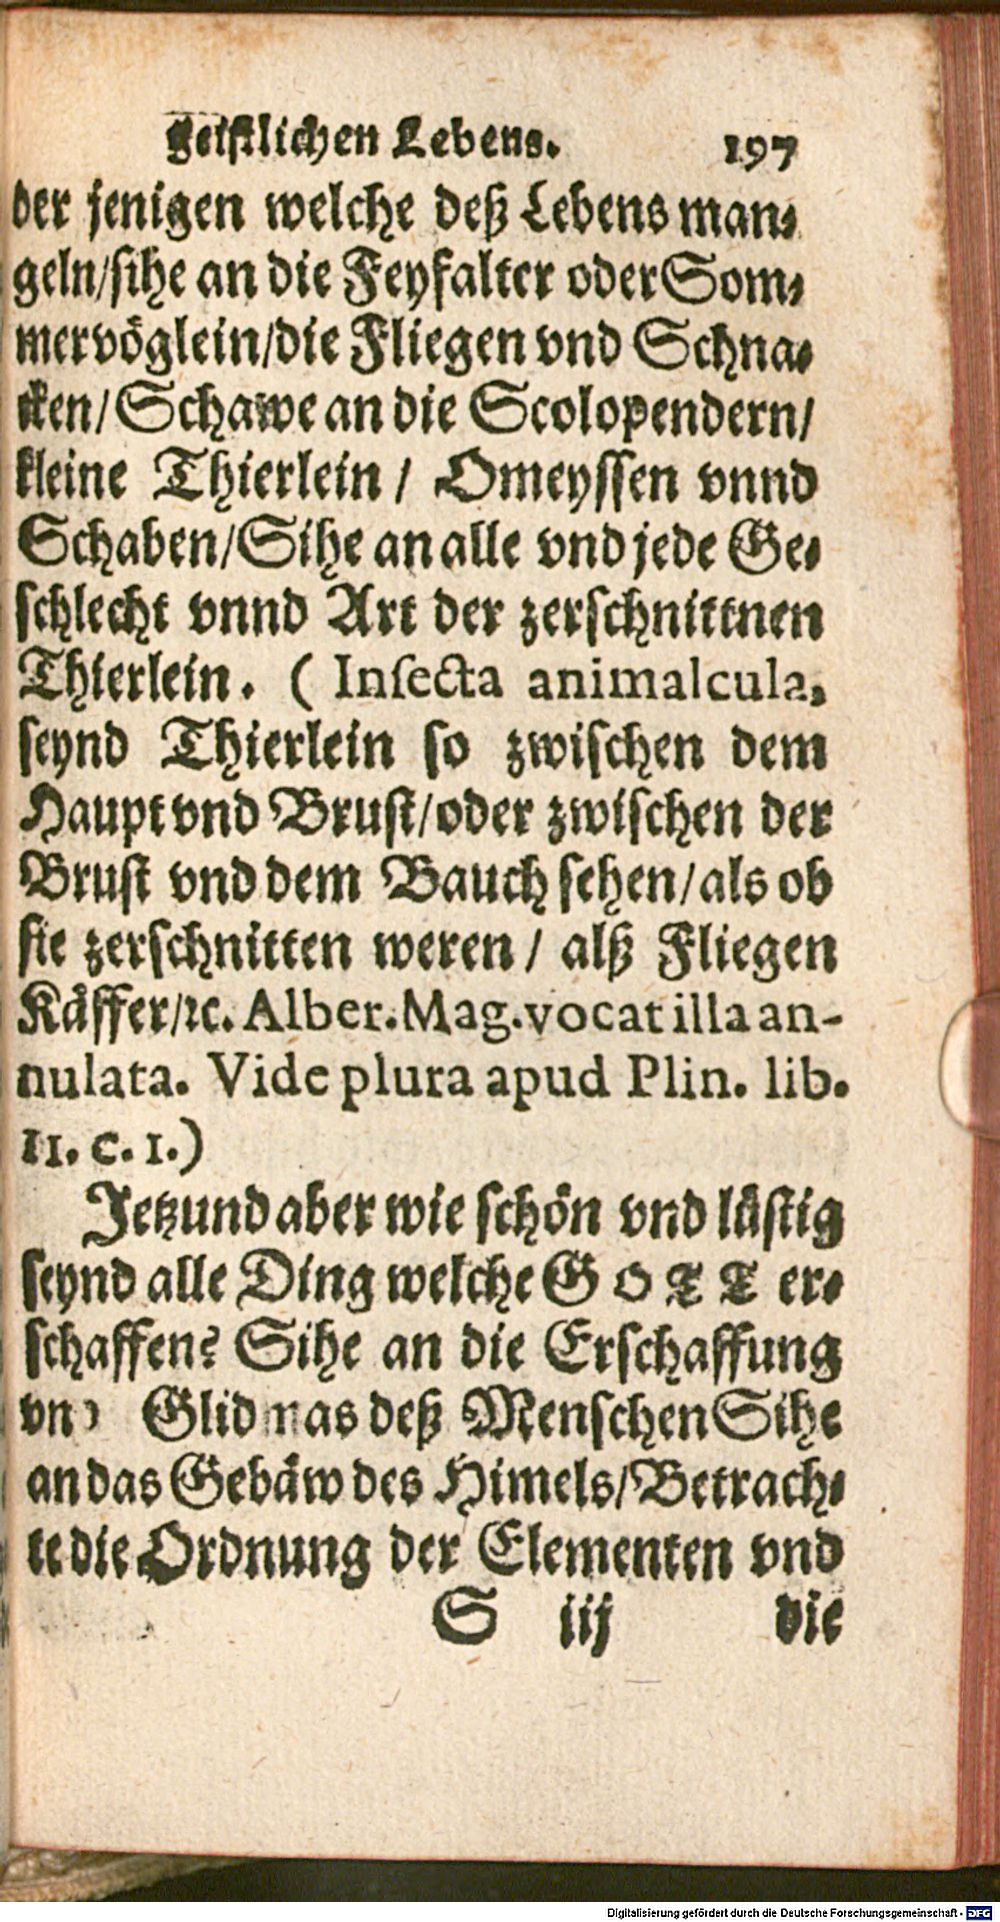 geistlichen Lebens. 197
der jenigen welche deß Lebens man⸗
geln/sihe an die Feyfalter oder Som⸗
mervöglein/die Fliegen vnd Schna⸗
cken/Schawe an die Scolopendern/
kleine Thierlein / Omeyssen vnnd
Schaben/Sihe an alle vnd jede Ge⸗
schlecht vnnd Art der zerschnittnen
Thierlein. ( Insecta animalcula.
seynd Thierlein so zwischen dem
Haupt vnd Brust/oder zwischen der
Brust vnd dem Bauch sehen/als ob
sie zerschnitten weren / alß Fliegen
Käffer/ꝛc. Alber. Mag. vocat illa an-
nulata. Vide plura apud Plin. lib.
11. c. 1.)
Jetzund aber wie schön vnd lüstig
seynd alle Ding welche GOTT er⸗
schaffen? Sihe an die Erschaffung
vnd Glidmas deß Menschen Sihe
an das Gebäw des Himels/Betrach⸗
te die Ordnung der Elementen vnd
S iij die
Digitalisierung gefördert durch die Deutsche Forschungsgemeinschaft - DFG